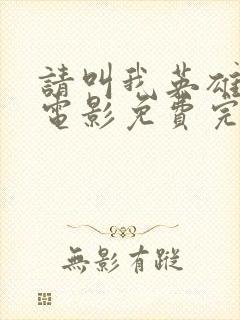 請叫我英雄
電影免費完
無影有蹤